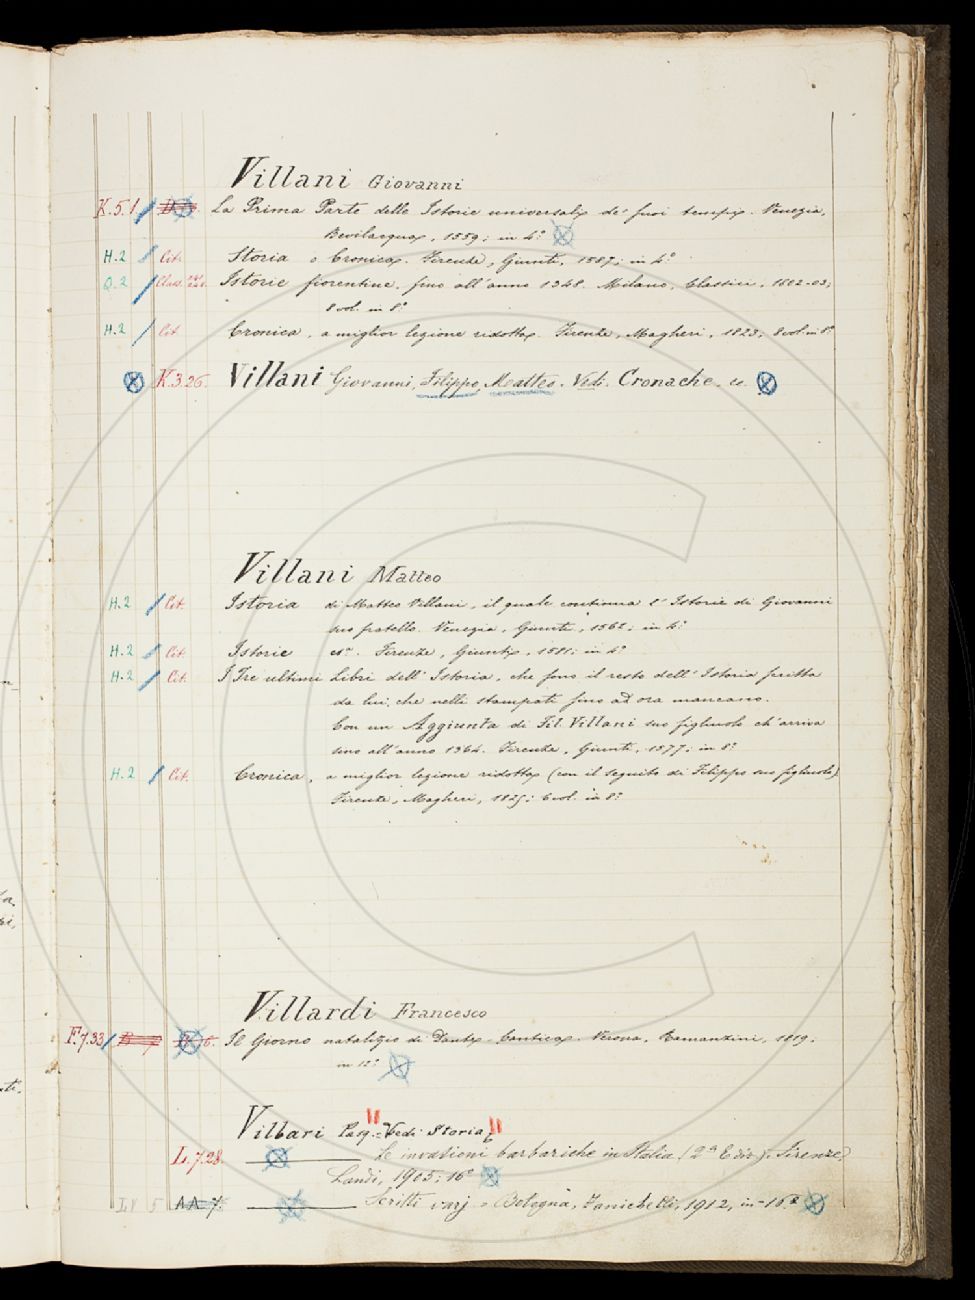 Villani Giovanni
K.5.1 La Prima Parte delle Istorie universali de' suoi tempi. Venezia,
Bevilacqua, 1559; in 4°
H.2 Cit. Storia o Cronica. Firenze, Giunti, 1587; in 4°
Q.2 Class. Istorie fiorentine, fino all'anno 1348. Milano, Classici, 1802-03;
8 vol. in 8°
H.2 Cit. Cronica, a miglior lezione ridotta. Firenze, Magheri, 1823; 8 vol. in 8°
K.3.26. Villani Giovanni, Filippo, Matteo. Vedi. Cronache
Villani Matteo
H.2 Cit. Istoria di Matteo Villani, il quale continua l'Istorie di Giovanni
suo fratello. Venezia, Giunti, 1562; in 4°
H.2 Cit. Istorie Firenze, Giunti, 1581; in 4°
H.2 Cit. I Tre ultimi Libri dell'Istoria, che sono il resto dell'Istoria scritta
da lui, che nelli stampati fino ad ora mancano.
Con un Aggiunta di Fil. Villani suo figliuolo ch'arriva
sino all'anno 1364. Firenze, Giunti, 1577; in 8°
H.2 Cit. Cronica, a miglior lezione ridotta (con il seguito di Filippo suo figliuolo)
Firenze, Magheri, 1825; 6 vol. in 8°
Villardi Francesco
F.7.33 Il Giorno natalizio di Dante. Cantica. Verona, Ramanzini, 1819;
in 12°
Villari Pasq. Vedi Storia
L.7.28. Le invasioni barbariche in Italia (2a Ediz). Firenze,
Landi, 1905; 16°
AA 7. Scritti varj Bologna, Zanichelli, 1912, in-16°